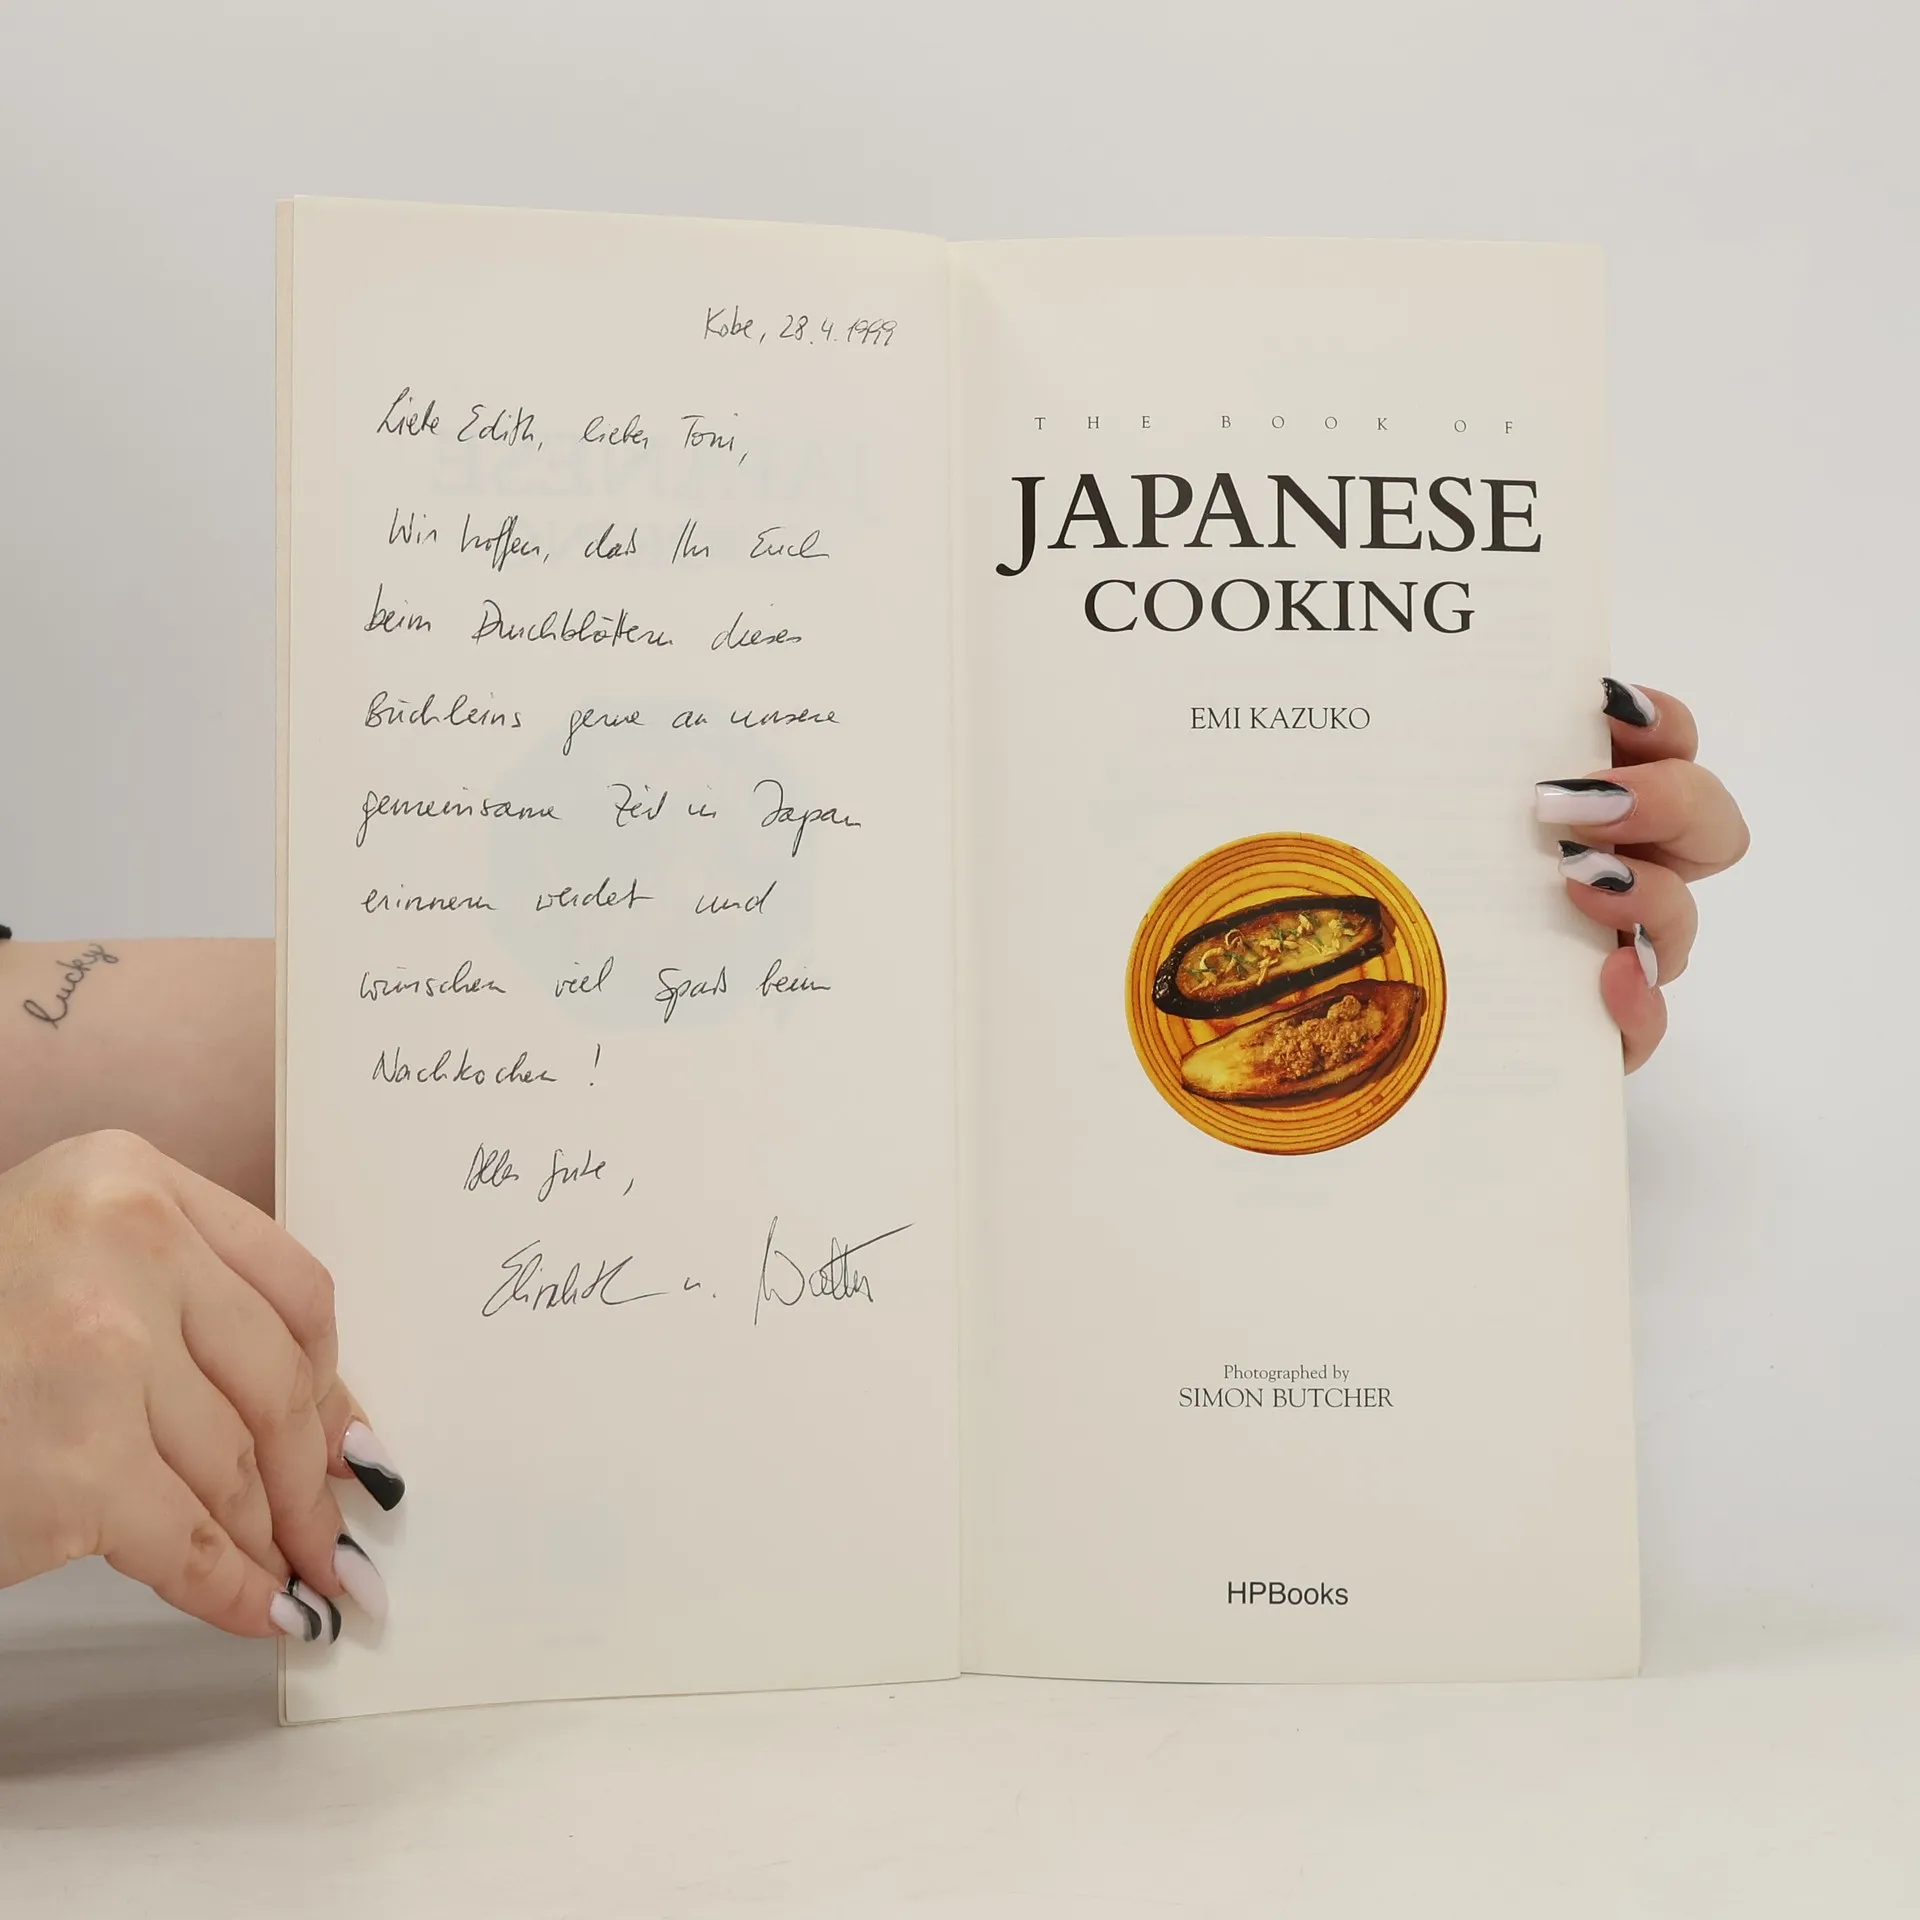 Kobe, 28.4.1999
Liebe Edith, lieber Toni,
Wir hoffen, daß Ihr Euch
beim Durchblättern dieses
Büchleins gerne an unsere
gemeinsame Zeit in Japan
erinnern werdet und
wünschen viel Spaß beim
Nachkochen!
Alles Gute,
Elisabeth u. Walter
THE BOOK OF
JAPANESE
COOKING
EMI KAZUKO
Photographed by
SIMON BUTCHER
HPBooks
lucky